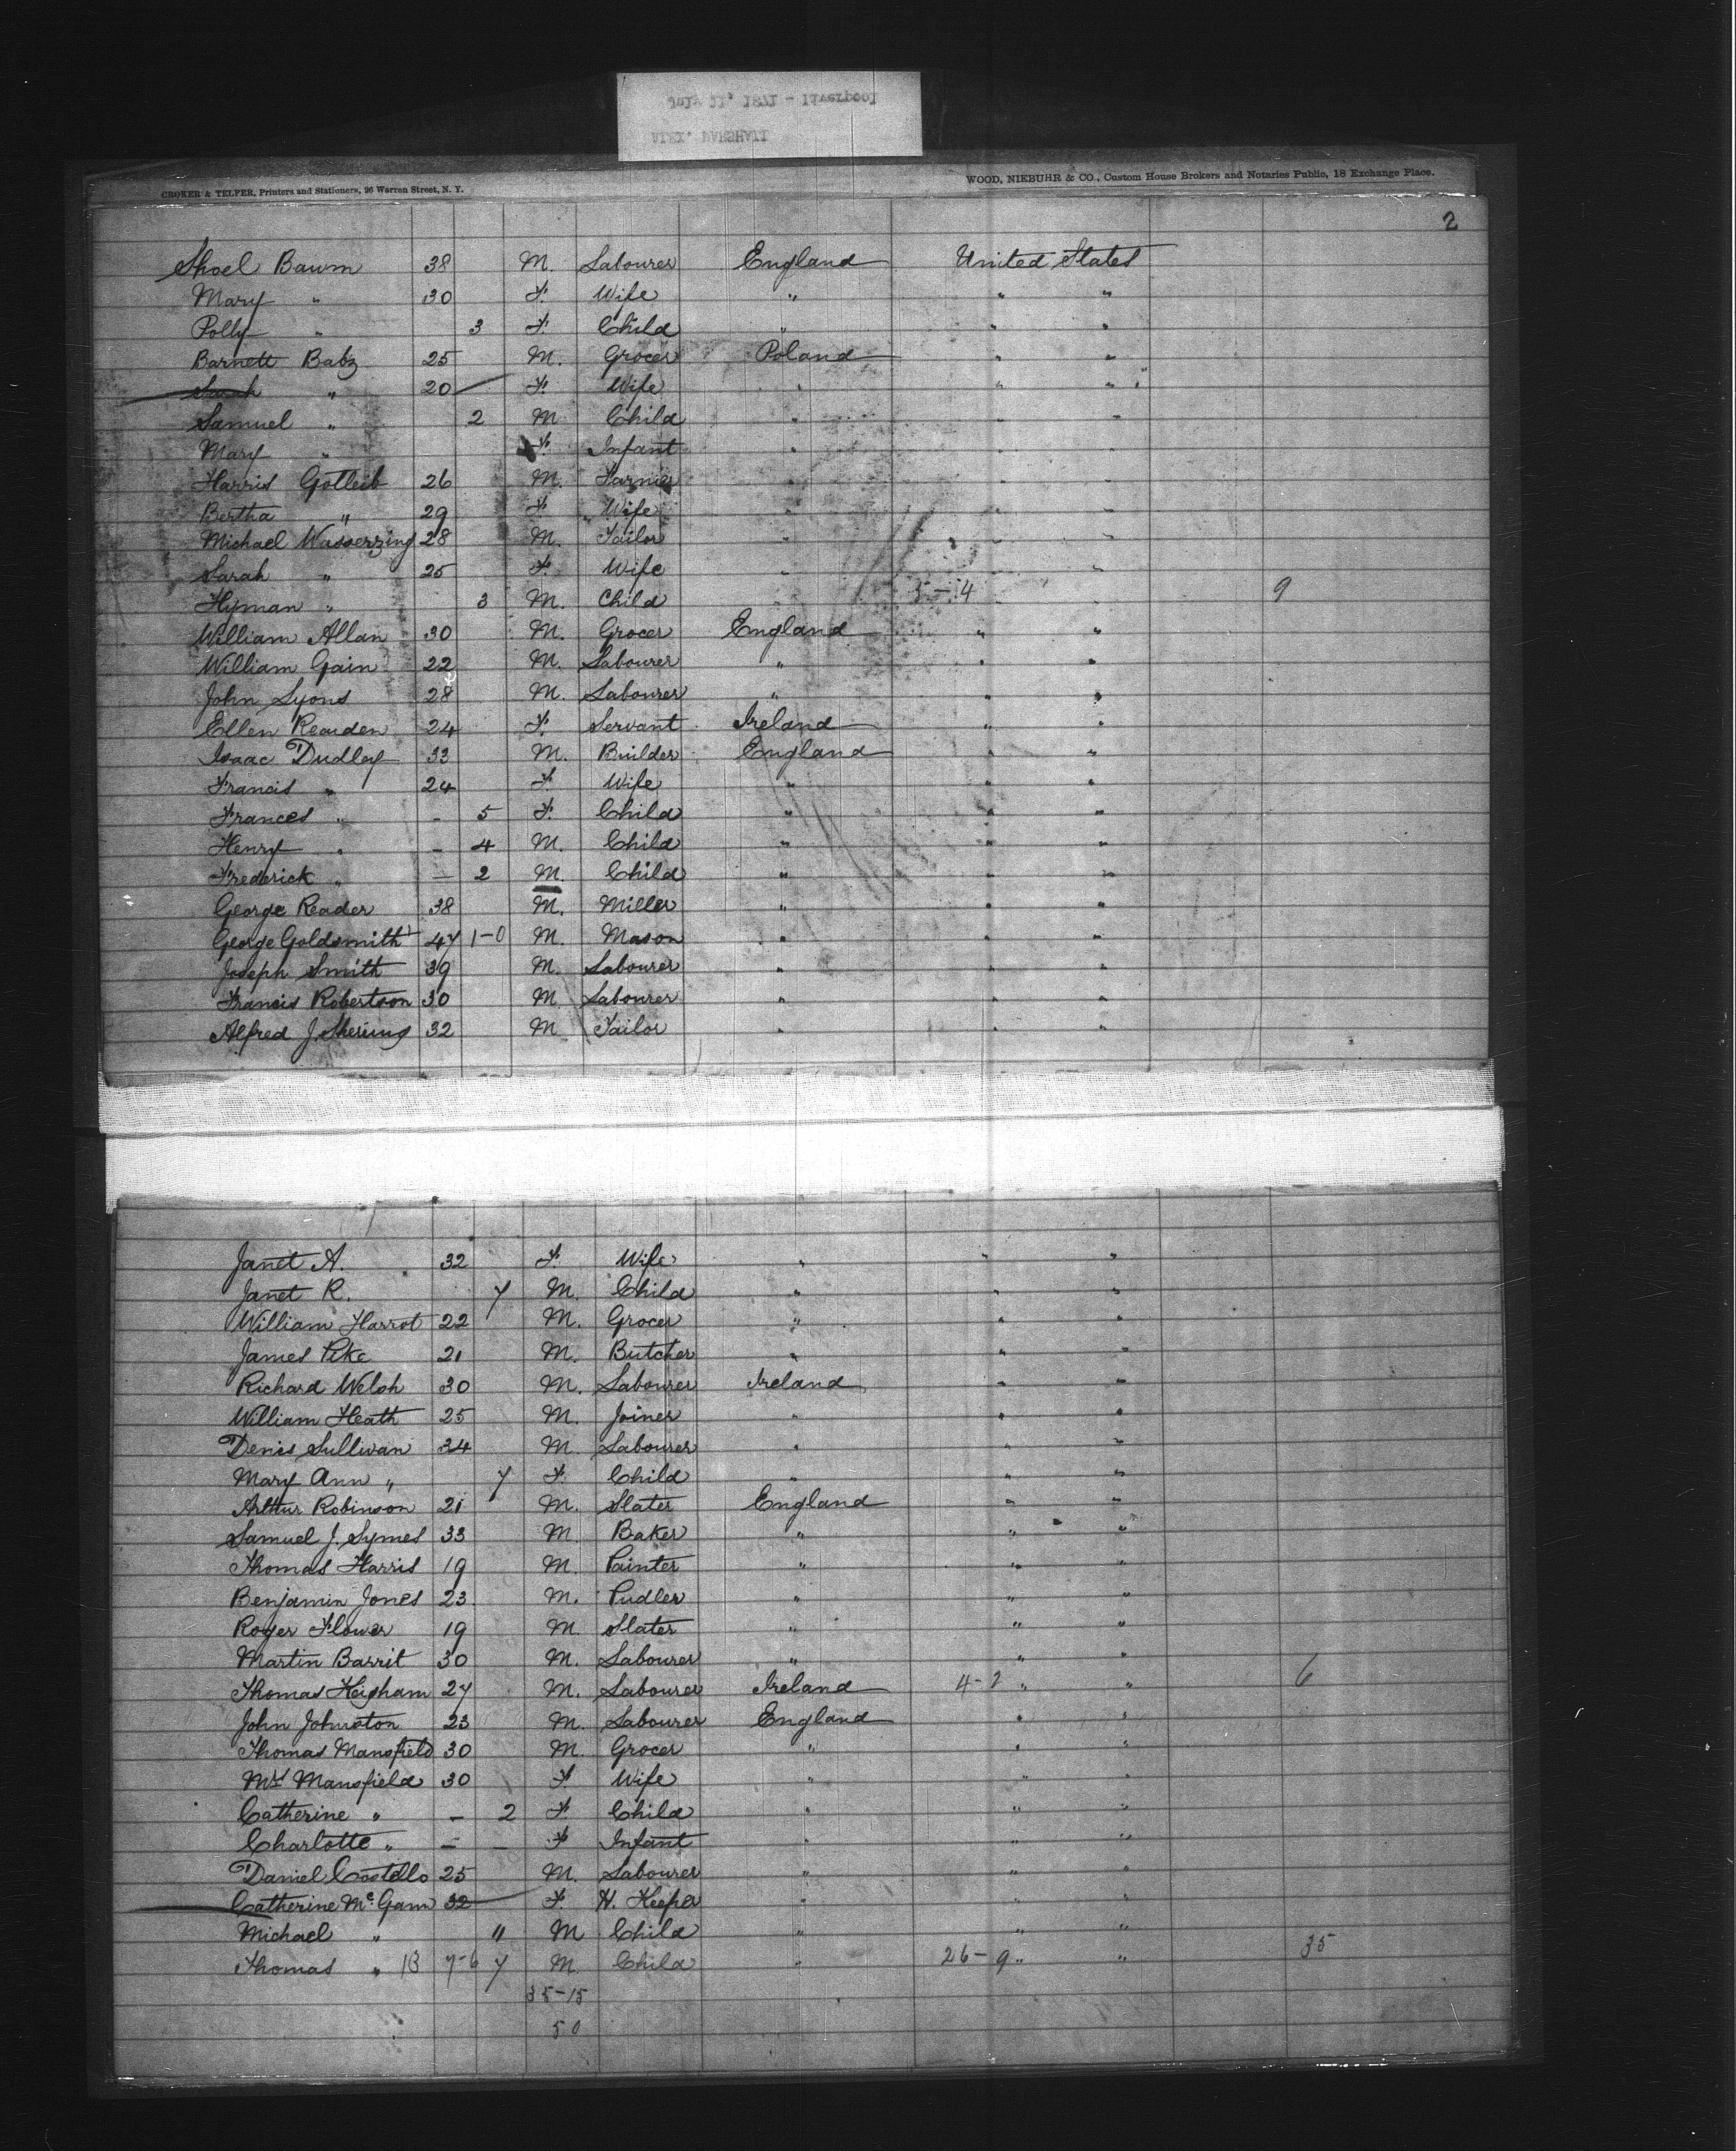 July 11, 1871 - Liverpool
ALEX. MARSHALL
CROKER & TELFER, Printers and Stationers, 96 Warren Street, N. Y. WOOD, NIEBUHR & CO., Custom House Brokers and Notaries Public, 18 Exchange Place.
2
Shoel Bawm 38 M. Labourer England United States
Mary " 30 F. Wife " " "
Polly " 3 F. Child " " "
Barnett Babz 25 M. Grocer Poland " "
Sarah " 20 F. Wife " " "
Samuel " 2 M Child " " "
Mary " F. Infant " " "
Harris Gotleib 26 M. " " "
Bertha " 29 F. Wife " " "
Michael Wasserzing 28 M. Tailor " " "
Sarah " 25 F. Wife " " "
Hyman " 3 M. Child " 5-4 " " 9
William Allan 30 M. Grocer England " "
William Gain 22 M. Labourer " " "
John Lyons 28 M. Labourer " " "
Ellen Rearden 24 F. Servant Ireland " "
Isaac Dudley 33 M. Builder England " "
Francis " 24 F. Wife " " "
Frances " - 5 F. Child " " "
Henry " - 4 M. Child " " "
Frederick " - 2 M. Child " " "
George Reader 38 M. Miller " " "
George Goldsmith 47 1-0 M. Mason " " "
Joseph Smith 39 M. Labourer " " "
Francis Robertson 30 M Labourer " " "
Alfred J. 32 M Tailor " " "
Janet A. 32 F. Wife " " "
Janet R. 7 M. Child " " "
William Harrot 22 M. Grocer " " "
James Pike 21 M. Butcher " " "
Richard Welsh 30 M. Labourer Ireland " "
William Heath 25 M. Joiner " " "
Denis Sullivan 34 M. Labourer " " "
Mary Ann " 7 F. Child " " "
Arthur Robinson 21 M. Slater England " "
Samuel J. Symes 33 M. Baker " " "
Thomas Harris 19 M. Painter " " "
Benjamin Jones 23 M. Pudler " " "
Roger Flower 19 M. Slater " " "
Martin Barrit 30 M. Labourer " " "
Thomas Heigham 27 M. Labourer Ireland 4-2 " " 6
John Johnston 23 M. Labourer England " "
Thomas Mansfield 30 M. Grocer " " "
Mrs Mansfield 30 F. Wife " " "
Catherine " - 2 F. Child " " "
Charlotte " - - F Infant " " "
Daniel Costello 25 M. Labourer " " "
Catherine McGann 32 F. H. Keeper " " "
Michael " 11 M Child " " "
Thomas " 13 7-6 7 M. Child " 26-9 " " 35
35-15
50